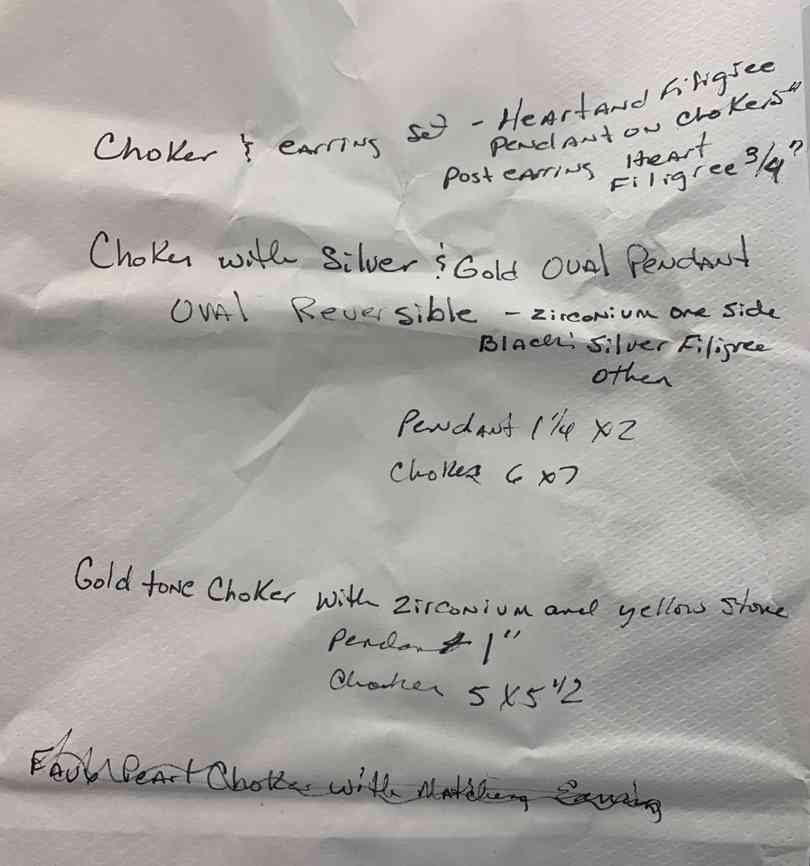 Choker & earring set - Heart and Filigree
Pendant on Choker 5"
Post earring Heart
Filigree 3/4"
Choker with Silver & Gold Oval Pendant
Oval Reversible - Zirconium one side
Black & Silver Filigree
Other
Pendant 1 1/4 x 2
Choker 6 x 7
Gold tone Choker with Zirconium and yellow stone
Pendant 1"
Choker 5 x 5 1/2
Choker with Matching Earring